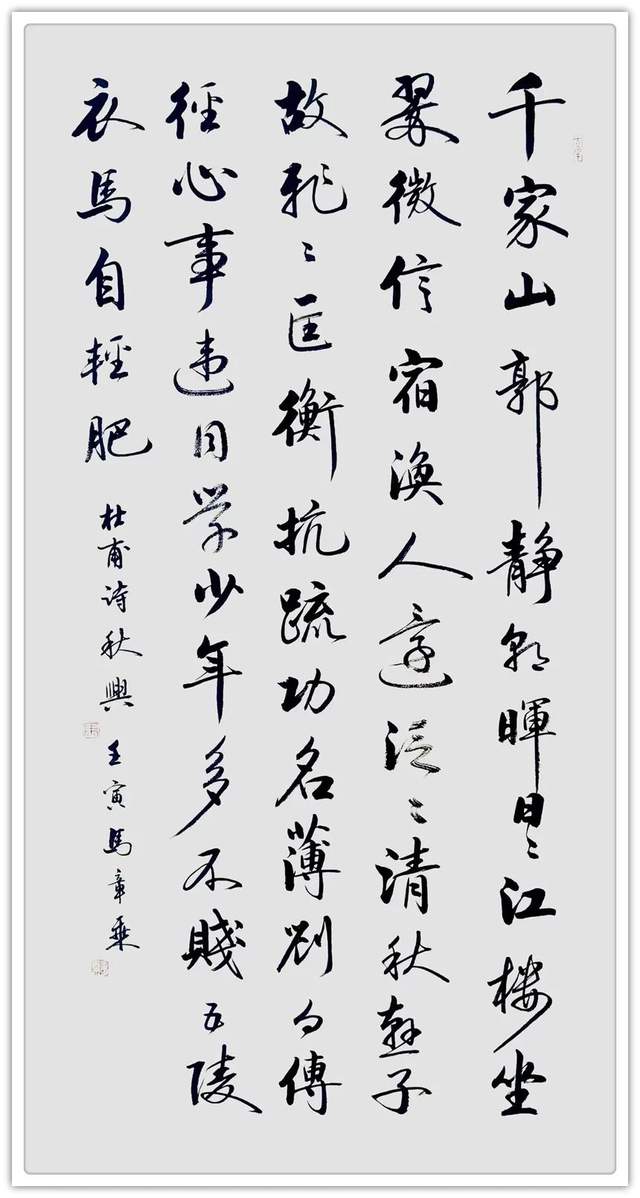 千家山郭静朝暉日〻江楼坐
翠微信宿漁人還泛〻清秋燕子
故飛〻匡衡抗疏功名薄劉向傳
經心事违同学少年多不賤五陵
衣馬自輕肥
杜甫诗秋興 壬寅馬章乘